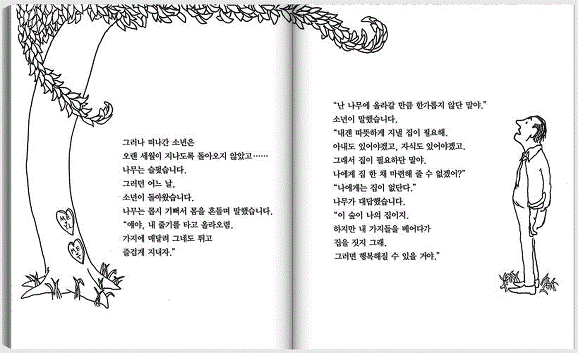 그러나 떠나간 소년은
오랜 세월이 지나도록 돌아오지 않았고……
나무는 슬펐습니다.
그러던 어느 날,
소년이 돌아왔습니다.
나무는 몹시 기뻐서 몸을 흔들며 말했습니다.
"얘야, 내 줄기를 타고 올라오렴.
가지에 매달려 그네도 뛰고
즐겁게 지내자."
"난 나무에 올라갈 만큼 한가롭지 않단 말야."
소년이 말했습니다.
"내겐 따뜻하게 지낼 집이 필요해.
아내도 있어야겠고, 자식도 있어야겠고,
그래서 집이 필요하단 말야.
나에게 집 한 채 마련해 줄 수 없겠어?"
"나에게는 집이 없단다."
나무가 대답했습니다.
"이 숲이 나의 집이지.
하지만 내 가지들을 베어다가
집을 짓지 그래.
그러면 행복해질 수 있을 거야."